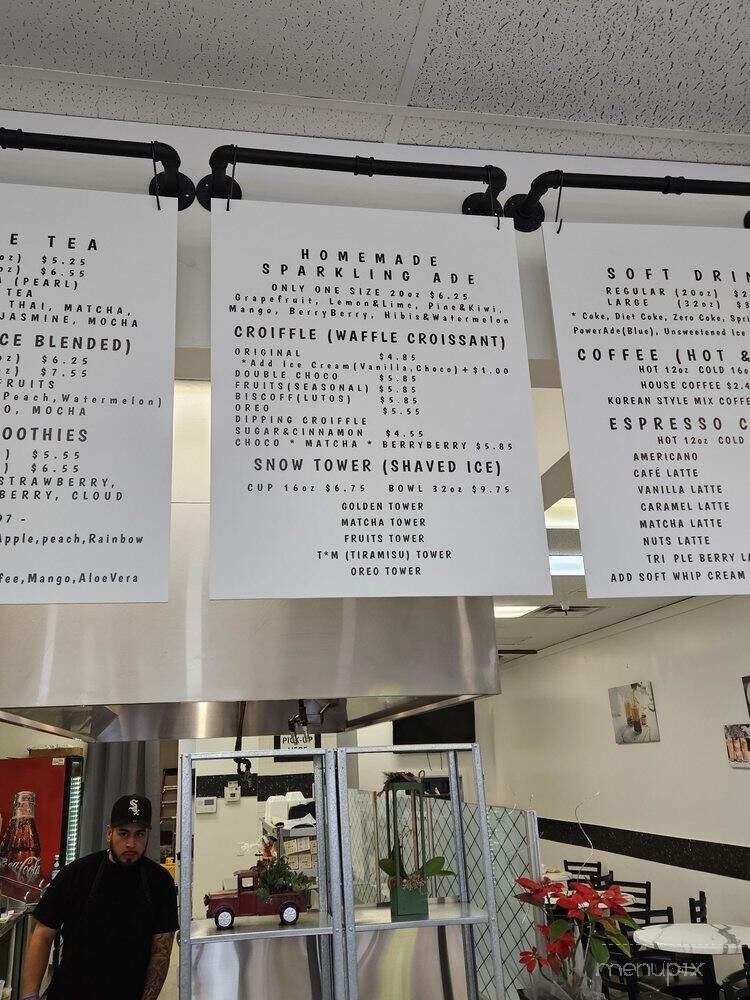 E TEA
oz) $5.25
oz) $6.55
(PEARL)
TEA
THAI, MATCHA,
JASMINE, MOCHA
ICE BLENDED)
oz) $6.25
oz) $7.55
FRUITS
Peach, Watermelon)
O, MOCHA
OOTHIES
) $5.55
) $6.55
STRAWBERRY,
BERRY, CLOUD
97 -
Apple,peach,Rainbow
fee,Mango,AloeVera
HOMEMADE
SPARKLING ADE
ONLY ONE SIZE 20oz $6.25
Grapefruit, Lemon&Lime, Pine&Kiwi,
Mango, BerryBerry, Hibis&Watermelon
CROIFFLE (WAFFLE CROISSANT)
ORIGINAL $4.85
*Add Ice Cream(Vanilla,Choco)+$1.00
DOUBLE CHOCO $5.85
FRUITS(SEASONAL) $5.85
BISCOFF(LUTOS) $5.85
OREO $5.55
DIPPING CROIFFLE
SUGAR&CINNAMON $4.55
CHOCO * MATCHA * BERRYBERRY $5.85
SNOW TOWER (SHAVED ICE)
CUP 16oz $6.75 BOWL 32oz $9.75
GOLDEN TOWER
MATCHA TOWER
FRUITS TOWER
T*M (TIRAMISU) TOWER
OREO TOWER
SOFT DRIN
REGULAR (20oz) $2
LARGE (32oz) $3
* Coke, Diet Coke, Zero Coke, Spri
PowerAde(Blue), Unsweetened Ice
COFFEE (HOT &
HOT 12oz COLD 16o
HOUSE COFFEE $2.4
KOREAN STYLE MIX COFFE
ESPRESSO C
HOT 12oz COLD
AMERICANO
CAFÉ LATTE
VANILLA LATTE
CARAMEL LATTE
MATCHA LATTE
NUTS LATTE
TRI PLE BERRY LA
ADD SOFT WHIP CREAM
PICK-UP
HERE
Coca-Cola
menupix